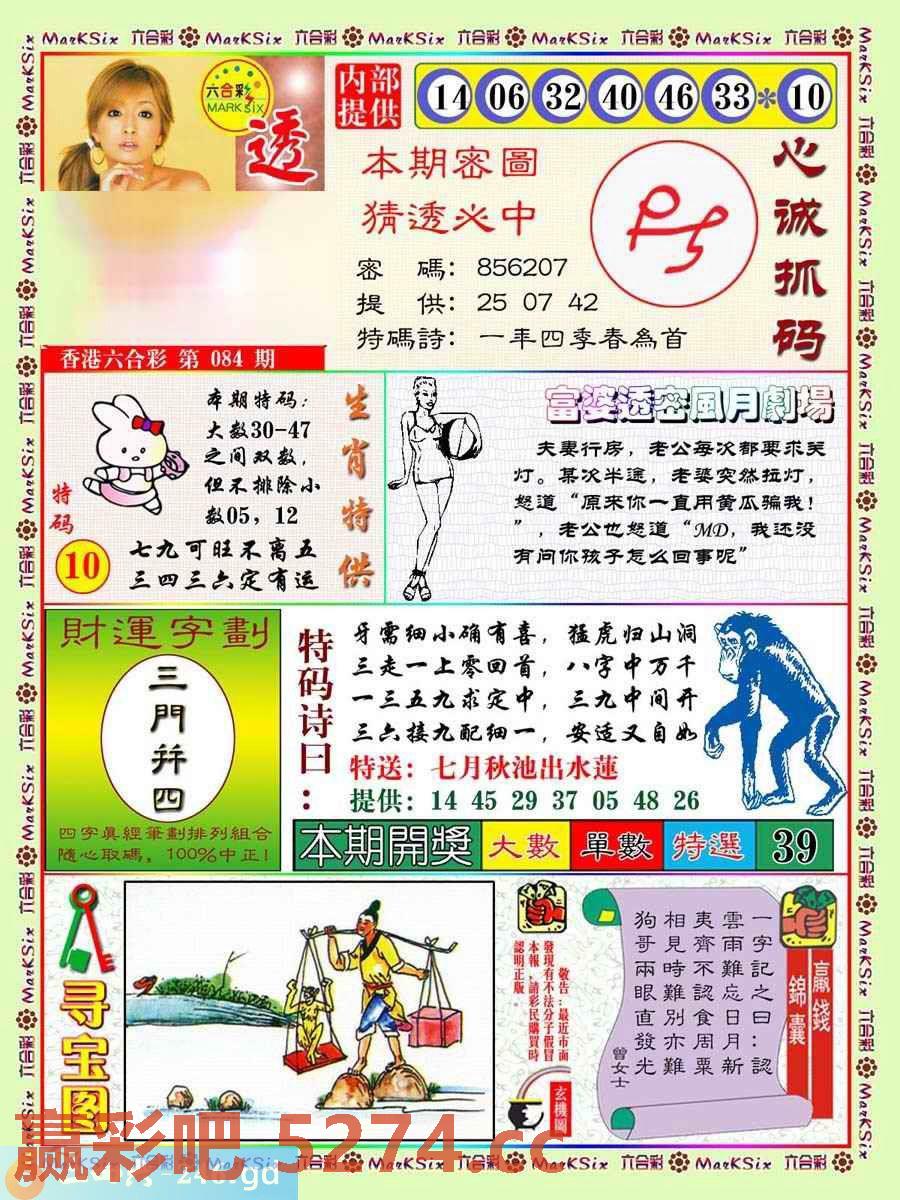 MarKSix 六合彩 MarKSix 六合彩 MarKSix 六合彩 MarKSix 六合彩 MarKSix 六合彩
六合彩
MARK six
透
内部
提供
14 06 32 40 46 33*10
本期密圖
猜透必中
密 碼: 856207
提 供: 25 07 42
特碼詩: 一年四季春為首
心诚抓码
香港六合彩 第 084 期
本期特码:
大数30-47
之间双数,
但不排除小
数05, 12
特码
10
七九可旺不离五
三四三六定有运
生肖特供
富婆透密風月劇場
夫妻行房, 老公每次都要求关
灯。某次半途, 老婆突然拉灯,
怒道“原来你一直用黄瓜骗我!
”, 老公也怒道“MD, 我还没
有问你孩子怎么回事呢”
財運字劃
三門并四
四字真經筆劃排列組合
隨心取碼, 100%中正!
特码诗曰:
牙需细小确有喜, 猛虎归山洞
三走一上零回首, 八字中万千
一三五九求定中, 三九中间开
三六接九配细一, 安适又自如
特送: 七月秋池出水蓮
提供: 14 45 29 37 05 48 26
本期開獎 大數 單數 特選 39
寻宝图
敬告:最近市面
發現有不法分子假冒
本報,請彩民購買時
認明正版。
玄機圖
一字記之曰:認
雲雨難忘日月新
夷齊不認食周粟
相見時難別亦難
狗哥兩眼直發光
曾女士
贏錢
錦囊
赢彩吧.5274.cc
MarKSix 六合彩 MarKSix 六合彩 MarKSix 六合彩 MarKSix 六合彩